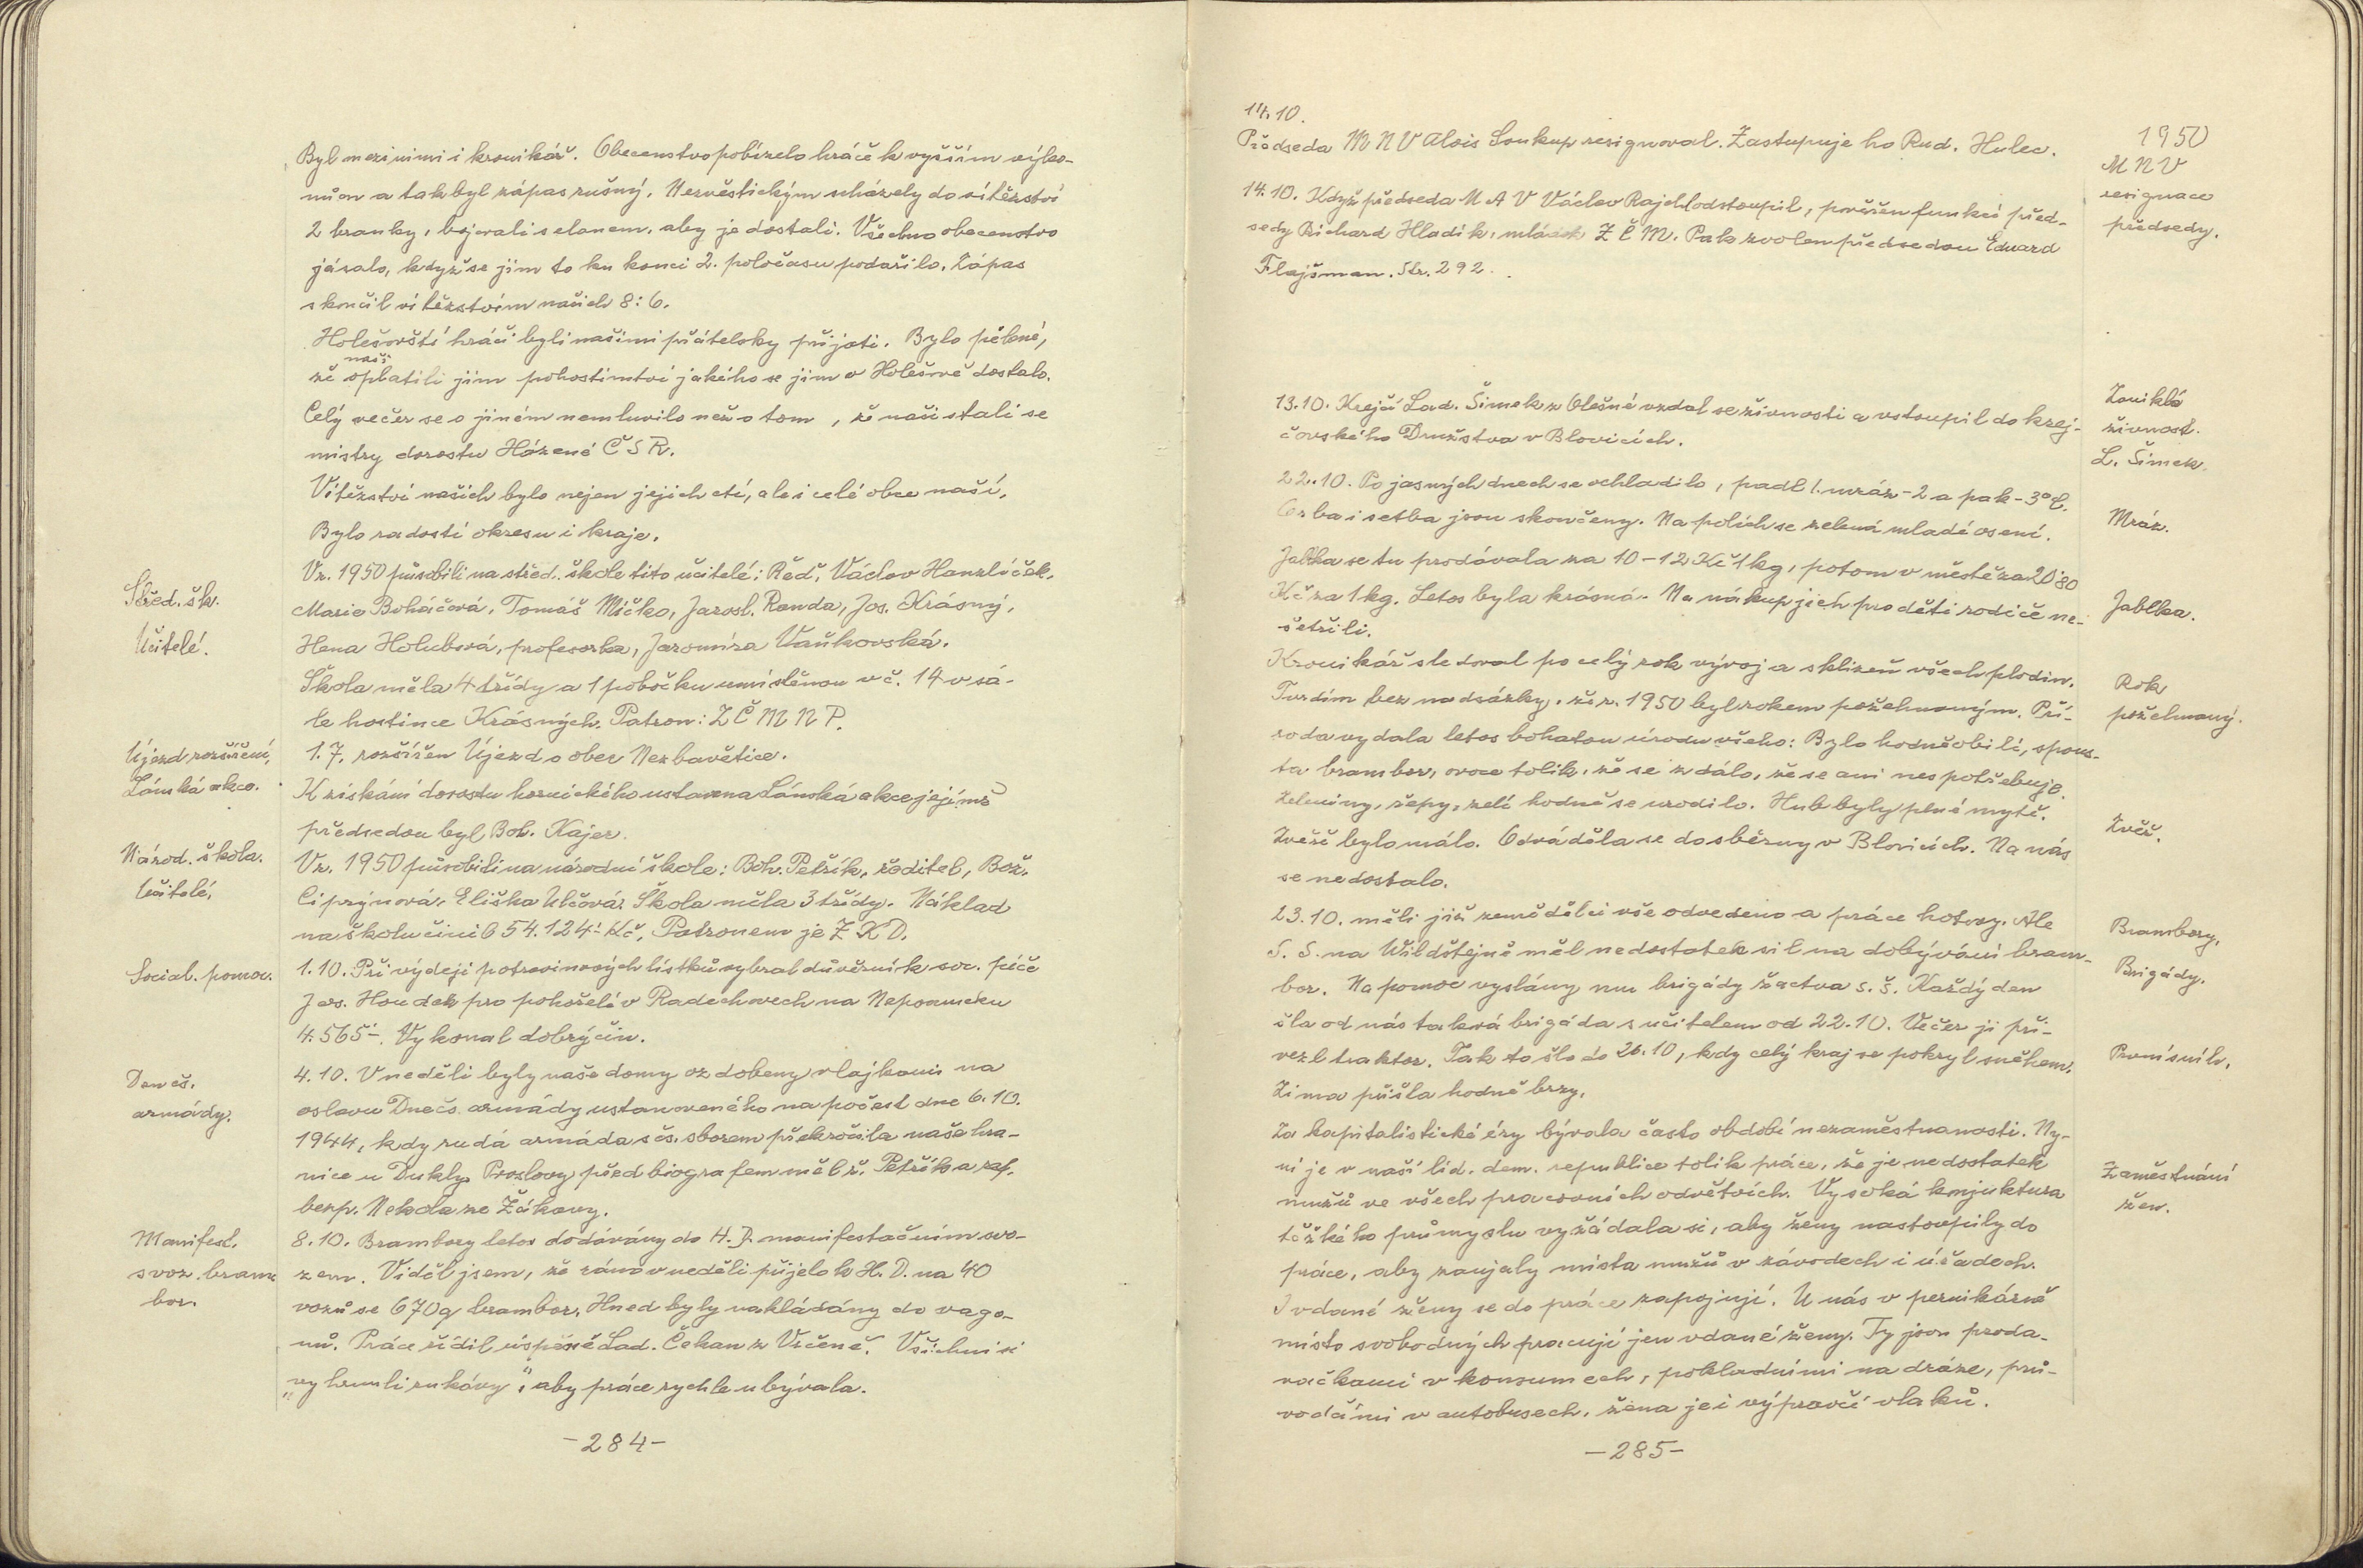 Byl mezi nimi i kronikář. Obecenstvo pobízelo hráče k vyšším výko-
nům a tak byl zápas rušný. Nezvěstickým scházely do vítězství
2 branky, bojovali s elanem, aby je dostali. Všechno obecenstvo
jásalo, když se jim to ku konci 2. poločasu podařilo. Zápas
skončil vítězstvím našich 8:6.
Holešovští hráči byli našimi přáteloky přijati. Bylo pěkné,
naši
že oplatili jim pohostinství jakého se jim v Holešově dostalo.
Celý večer se o jiném nemluvilo než o tom, že naši stali se
mistry dorostu Házené ČSR.
Vítězství našich bylo nejen jejich ctí, ale i celé obce naší.
Bylo radostí okresu i kraje.
Střed. šk.
Učitelé.
V r. 1950 působili na střed. škole tito učitelé: Řed. Václav Hanzlíček,
Marie Boháčová, Tomáš Mičko, Jarosl. Randa, Jos. Krásný,
Hena Holubová, profesorka, Jaromíra Vaňkovská.
Škola měla 4 třídy a 1 pobočku umístěnou v č. 14 v sá-
le hostince Krásných. Patron: ZČM NP.
Újezd rozšíření,
1.7. rozšířen Újezd o obec Nezbavětice.
Lánská akce.
K získání dorostu hornického ustavena Lánská akce jejímž
předsedou byl Boh. Kajer.
Národ. škola.
Učitelé,
V r. 1950 působili na národní škole: Boh. Petřík, ředitel, Bož.
Ciprýnová, Eliška Ulčová. Škola měla 3 třídy. Náklad
na školu činil 654.124·- Kč. Patronem je ŽKD.
Social. pomoc.
1.10. Při výdeji potravinových lístků vybral důvěrník soc. péče
Jos. Houdek pro pohořelé v Radechovech na Nepomucku
4.565·-. Vykonal dobrý čin.
Den čs.
armády.
4.10. V neděli byly naše domy ozdobeny vlajkami na
oslavu Dne čs. armády ustanoveného na počest dne 6.10.
1944, kdy rudá armáda s čs. sborem překročila naše hra-
nice u Dukly. Proslovy před biografem měl ř. Petřík a ref.
bezp. Nekola ze Žákavy.
Manifest.
svoz bram
bor.
8.10. Brambory letos dodávány do H.D. manifestačním svo-
zem. Viděl jsem, že ráno v neděli přijelo k H.D. na 40
vozů se 670 q brambor. Hned byly nakládány do vago-
nů. Práce řídil úspěšně Lad. Čekan z Vlčeně. Všichni si
„vyhrnuli rukávy", aby práce rychle ubývala.
-284-
1950
14.10.
Předseda MNV Alois Soukup resignoval. Zastupuje ho Rud. Hulec.
MNV
resignace
předsedy.
14.10. Když předseda MAV Václav Rajchl odstoupil, pověřen funkcí před-
sedy Richard Hladík, mládek ZČM. Pak zvolen předsedou Eduard
Flajšman. Str. 292.
Zaniklá
živnost.
L. Šimek.
13.10. Krejčí Lad. Šimek z Olešné vzdal se živnosti a vstoupil do krej-
čovského Družstva v Blovicích.
Mráz.
22.10. Po jasných dnech se ochladilo, padl 1. mráz -2 a pak -3° C.
Orba i setba jsou skončeny. Na polích se zelená mladé osení.
Jablka.
Jablka se tu prodávala za 10-12 Kč 1 kg, potom v městě za 20·80
Kč za 1 kg. Letos byla krásná. Na nákup jich pro děti rodiče ne-
šetřili.
Rok
požehnaný.
Kronikář sledoval po celý rok vývoj a sklizeň všech plodin.
Tvrdím bez nadsázky, že r. 1950 byl rokem požehnaným. Pří-
roda vydala letos bohatou úrodu všeho: Bylo hodně obilí, spous-
ta brambor, ovoce tolik, že se zdálo, že se ani nespotřebuje.
Zeleniny, řepy, zelí hodně se urodilo. Hub byly plné mytě.
Zvěř.
Zvěře bylo málo. Odváděla se do sběrny v Blovicích. Na nás
se nedostalo.
Brambory.
Brigády.
23.10. měli již zemědělci vše odvedeno a práce hotovy. Ale
S.S. na Wildštejně měl nedostatek sil na dobývání bram-
bor. Na pomoc vyslány mu brigády žactva s.š. Každý den
šla od nás taková brigáda s učitelem od 22.10. Večer ji při-
vezl traktor. Tak to šlo do 26.10, kdy celý kraj se pokryl sněhem.
První sníh.
Zima přišla hodně brzy.
Zaměstnání
žen.
Za kapitalistické éry bývala často období nezaměstnanosti. Ny-
ní je v naší lid. dem. republice tolik práce, že je nedostatek
mužů ve všech pracovních odvětvích. Vysoká konjuktura
těžkého průmyslu vyžádala si, aby ženy nastoupily do
práce, aby zaujaly místa mužů v závodech i úřadech.
I vdané ženy se do práce zapojují. U nás v pernikárně
místo svobodných pracují jen vdané ženy. Ty jsou proda-
vačkami v konsumech, pokladními na dráze, prů-
vodčími v autobusech, žena je i výpravčí vlaků.
-285-